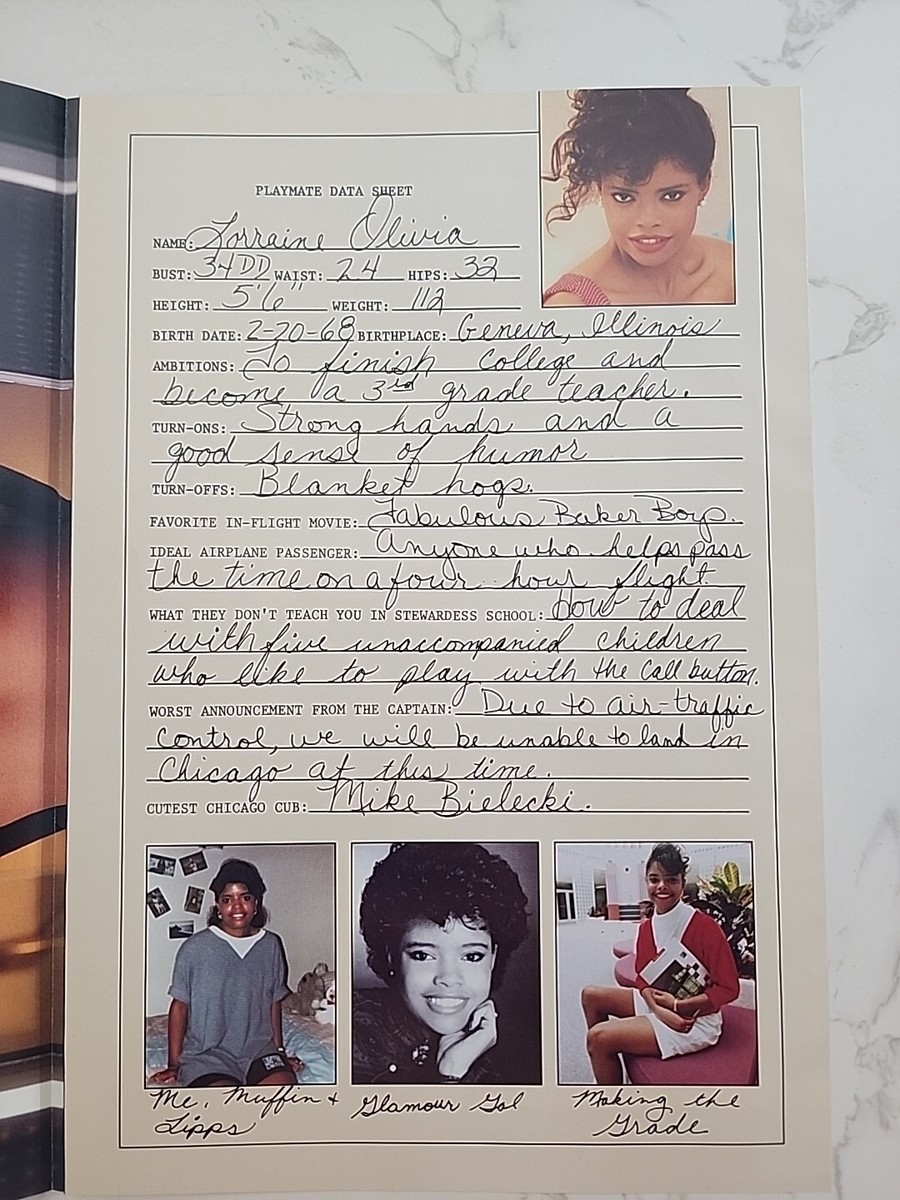 PLAYMATE DATA SHEET
NAME: Lorraine Olivia
BUST: 34DD WAIST: 24 HIPS: 32
HEIGHT: 5'6" WEIGHT: 112
BIRTH DATE: 2-20-68 BIRTHPLACE: Geneva, Illinois
AMBITIONS: To finish college and
become a 3rd grade teacher.
TURN-ONS: Strong hands and a
good sense of humor
TURN-OFFS: Blanket hogs.
FAVORITE IN-FLIGHT MOVIE: Fabulous Baker Boys.
IDEAL AIRPLANE PASSENGER: Anyone who helps pass
the time on a four hour flight.
WHAT THEY DON'T TEACH YOU IN STEWARDESS SCHOOL: How to deal
with five unaccompanied children
who like to play with the call button.
WORST ANNOUNCEMENT FROM THE CAPTAIN: Due to air-traffic
control, we will be unable to land in
Chicago at this time.
CUTEST CHICAGO CUB: Mike Bielecki.
Me, Muffin +
Lipps
Glamour Gal
Making the
Grade